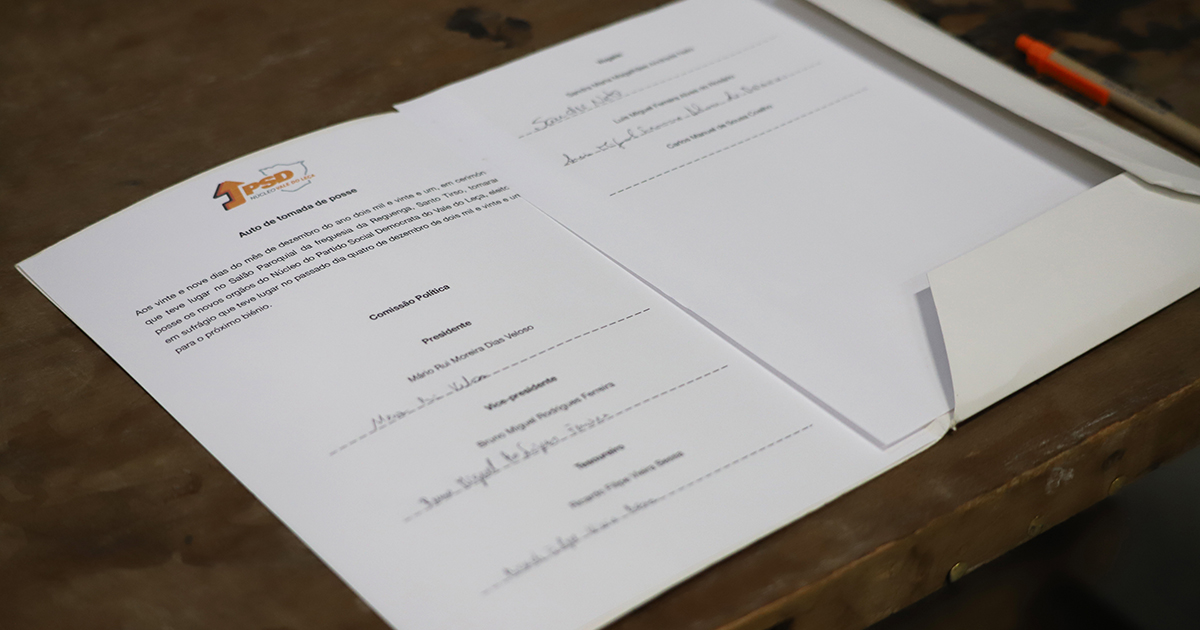 PSD
NÚCLEO VALE DO LEÇA
Auto de tomada de posse
Aos vinte e nove dias do mês de dezembro do ano dois mil e vinte e um, em cerimón
que teve lugar no Salão Paroquial da freguesia da Reguenga, Santo Tirso, tomara
posse os novos orgãos do Núcleo do Partido Social Democrata do Vale do Leça, eleito
em sufrágio que teve lugar no passado dia quatro de dezembro de dois mil e vinte e um
para o próximo biénio.
Comissão Política
Presidente
Mário Rui Moreira Dias Veloso
Vice-presidente
Bruno Miguel Rodrigues Ferreira
Tesoureiro
Ricardo Filipe Vieira Bessa
Vogais
Sandra Maria
Luís Miguel Ferreira
Carlos Manuel de Sousa Coelho